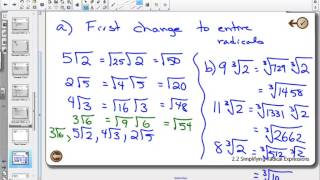 a) First change to entire
radicals
5√2 = √25 √2 = √50
2√5 = √4 √5 = √20
4√3 = √16 √3 = √48
3√6 = √9 √6 = √54
3√6, 5√2, 4√3, 2√5
b) 9 ∛2 = ∛729 ∛2
= ∛1458
11 ∛2 = ∛1331 ∛2
= ∛2662
8 ∛2 = ∛512 ∛2
2.2 Simplifying Radical Expressions